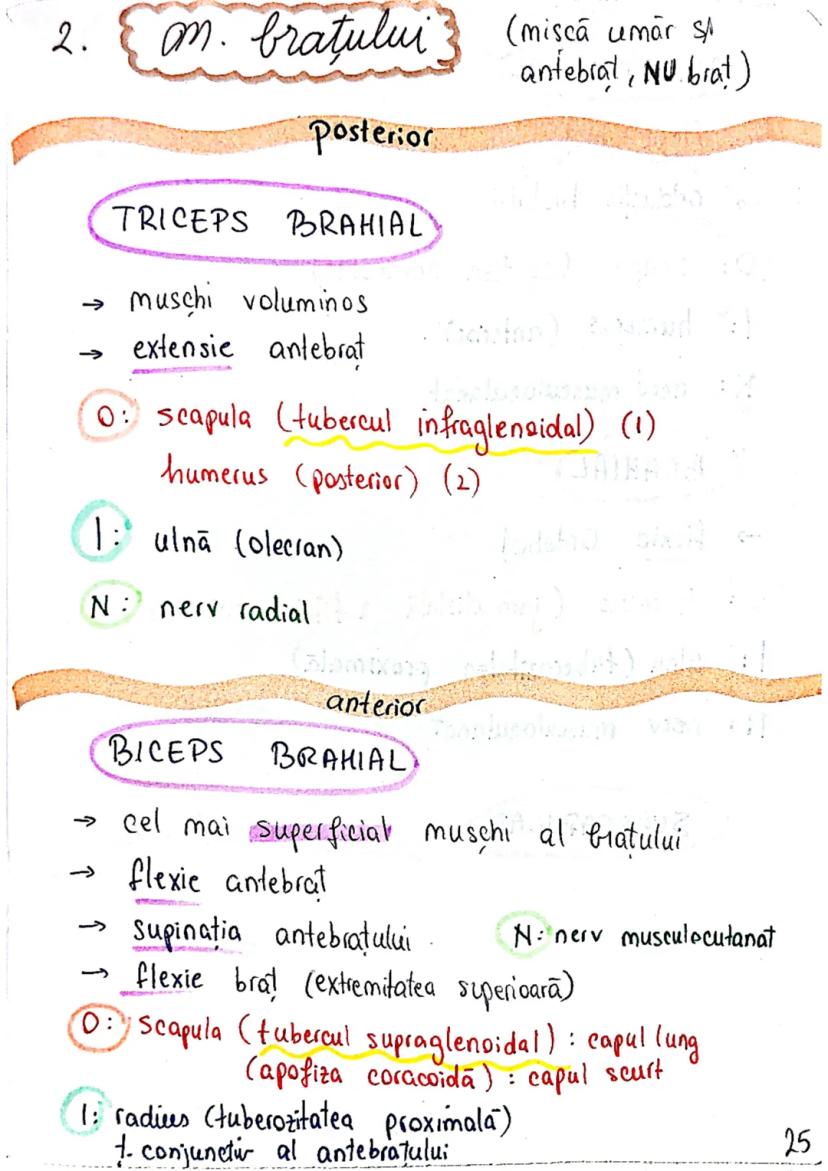 2. m. brațului (mișcă umăr și
antebraț, NU braț)
posterior
TRICEPS BRAHIAL
→ mușchi voluminos
→ extensie antebraț
O: scapula (tubercul infraglenoidal) (1)
humerus (posterior) (2)
I: ulnă (olecran)
N: nerv radial
anterior
BICEPS BRAHIAL
→ cel mai superficial mușchi al brațului
→ flexie antebraț
→ supinația antebrațului. N: nerv musculocutanat
→ flexie braț (extremitatea superioară)
O: scapula (tubercul supraglenoidal) : capul lung
(apofiza coracoidă) : capul scurt
I: radius (tuberozitatea proximală)
ț. conjunctiv al antebrațului
25